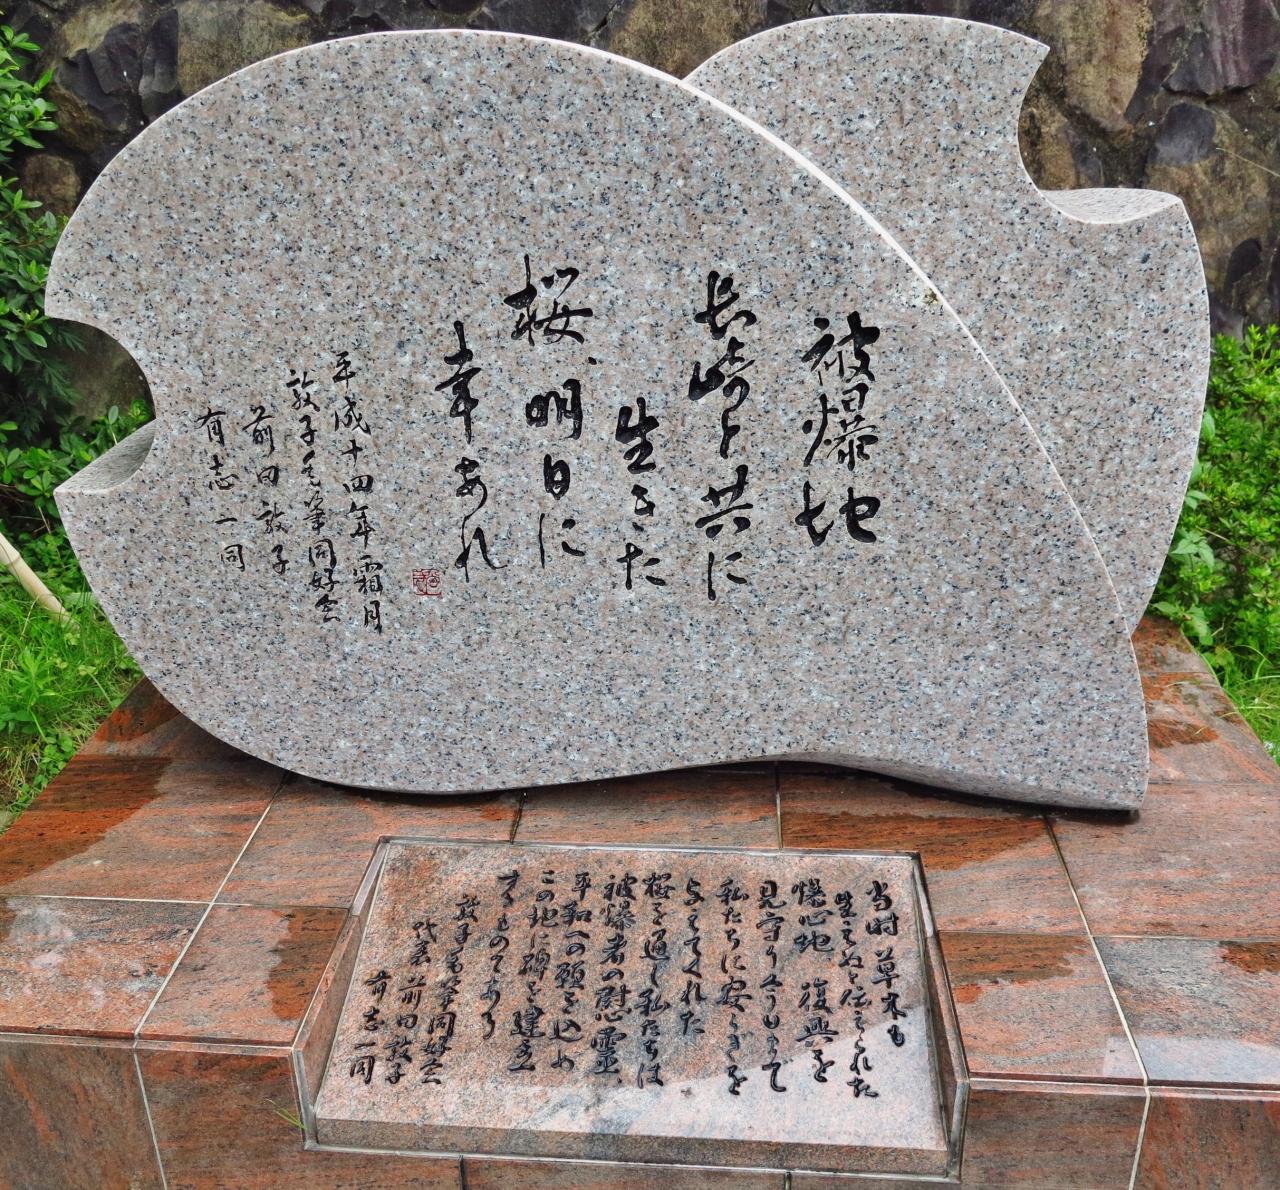 被爆地
長崎と共に
生きた
桜、明日に
幸あれ
平成十四年霜月
敦子毛筆同好会
前田敦子
有志一同
当時草木も
生えぬと伝えられた
爆心地 復興を
見守り今日まで
私たちに安らぎを
与えてくれた
桜を通し私たちは
被爆者の慰霊、
平和への願を込め
この地に碑を建立
するものである
敦子毛筆同好会
代表 前田敦子
有志一同